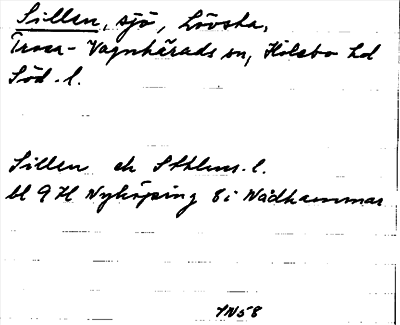 Sillen, sjö, Lövsta,
Trosa-Vagnhärads sn, Hölebo hd
Söd. l.
Sillen ek Sthlms. l.
bl 9H Nyköping 8i Nådhammar